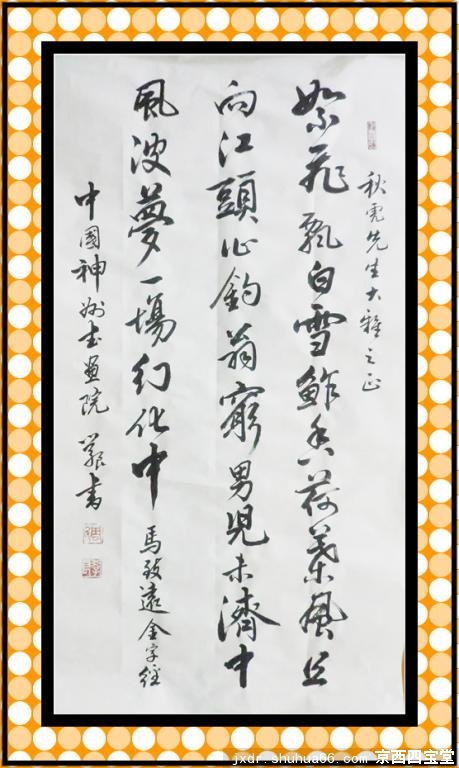 秋先生大雅之正
絮飛飄白雪鮓香荷葉風且
向江頭作釣翁窮男兒未濟中
風波夢一場幻化中
馬致遠金字經
中國神州书畫院 书
jxdr.shuhua06.com 京西四宝堂